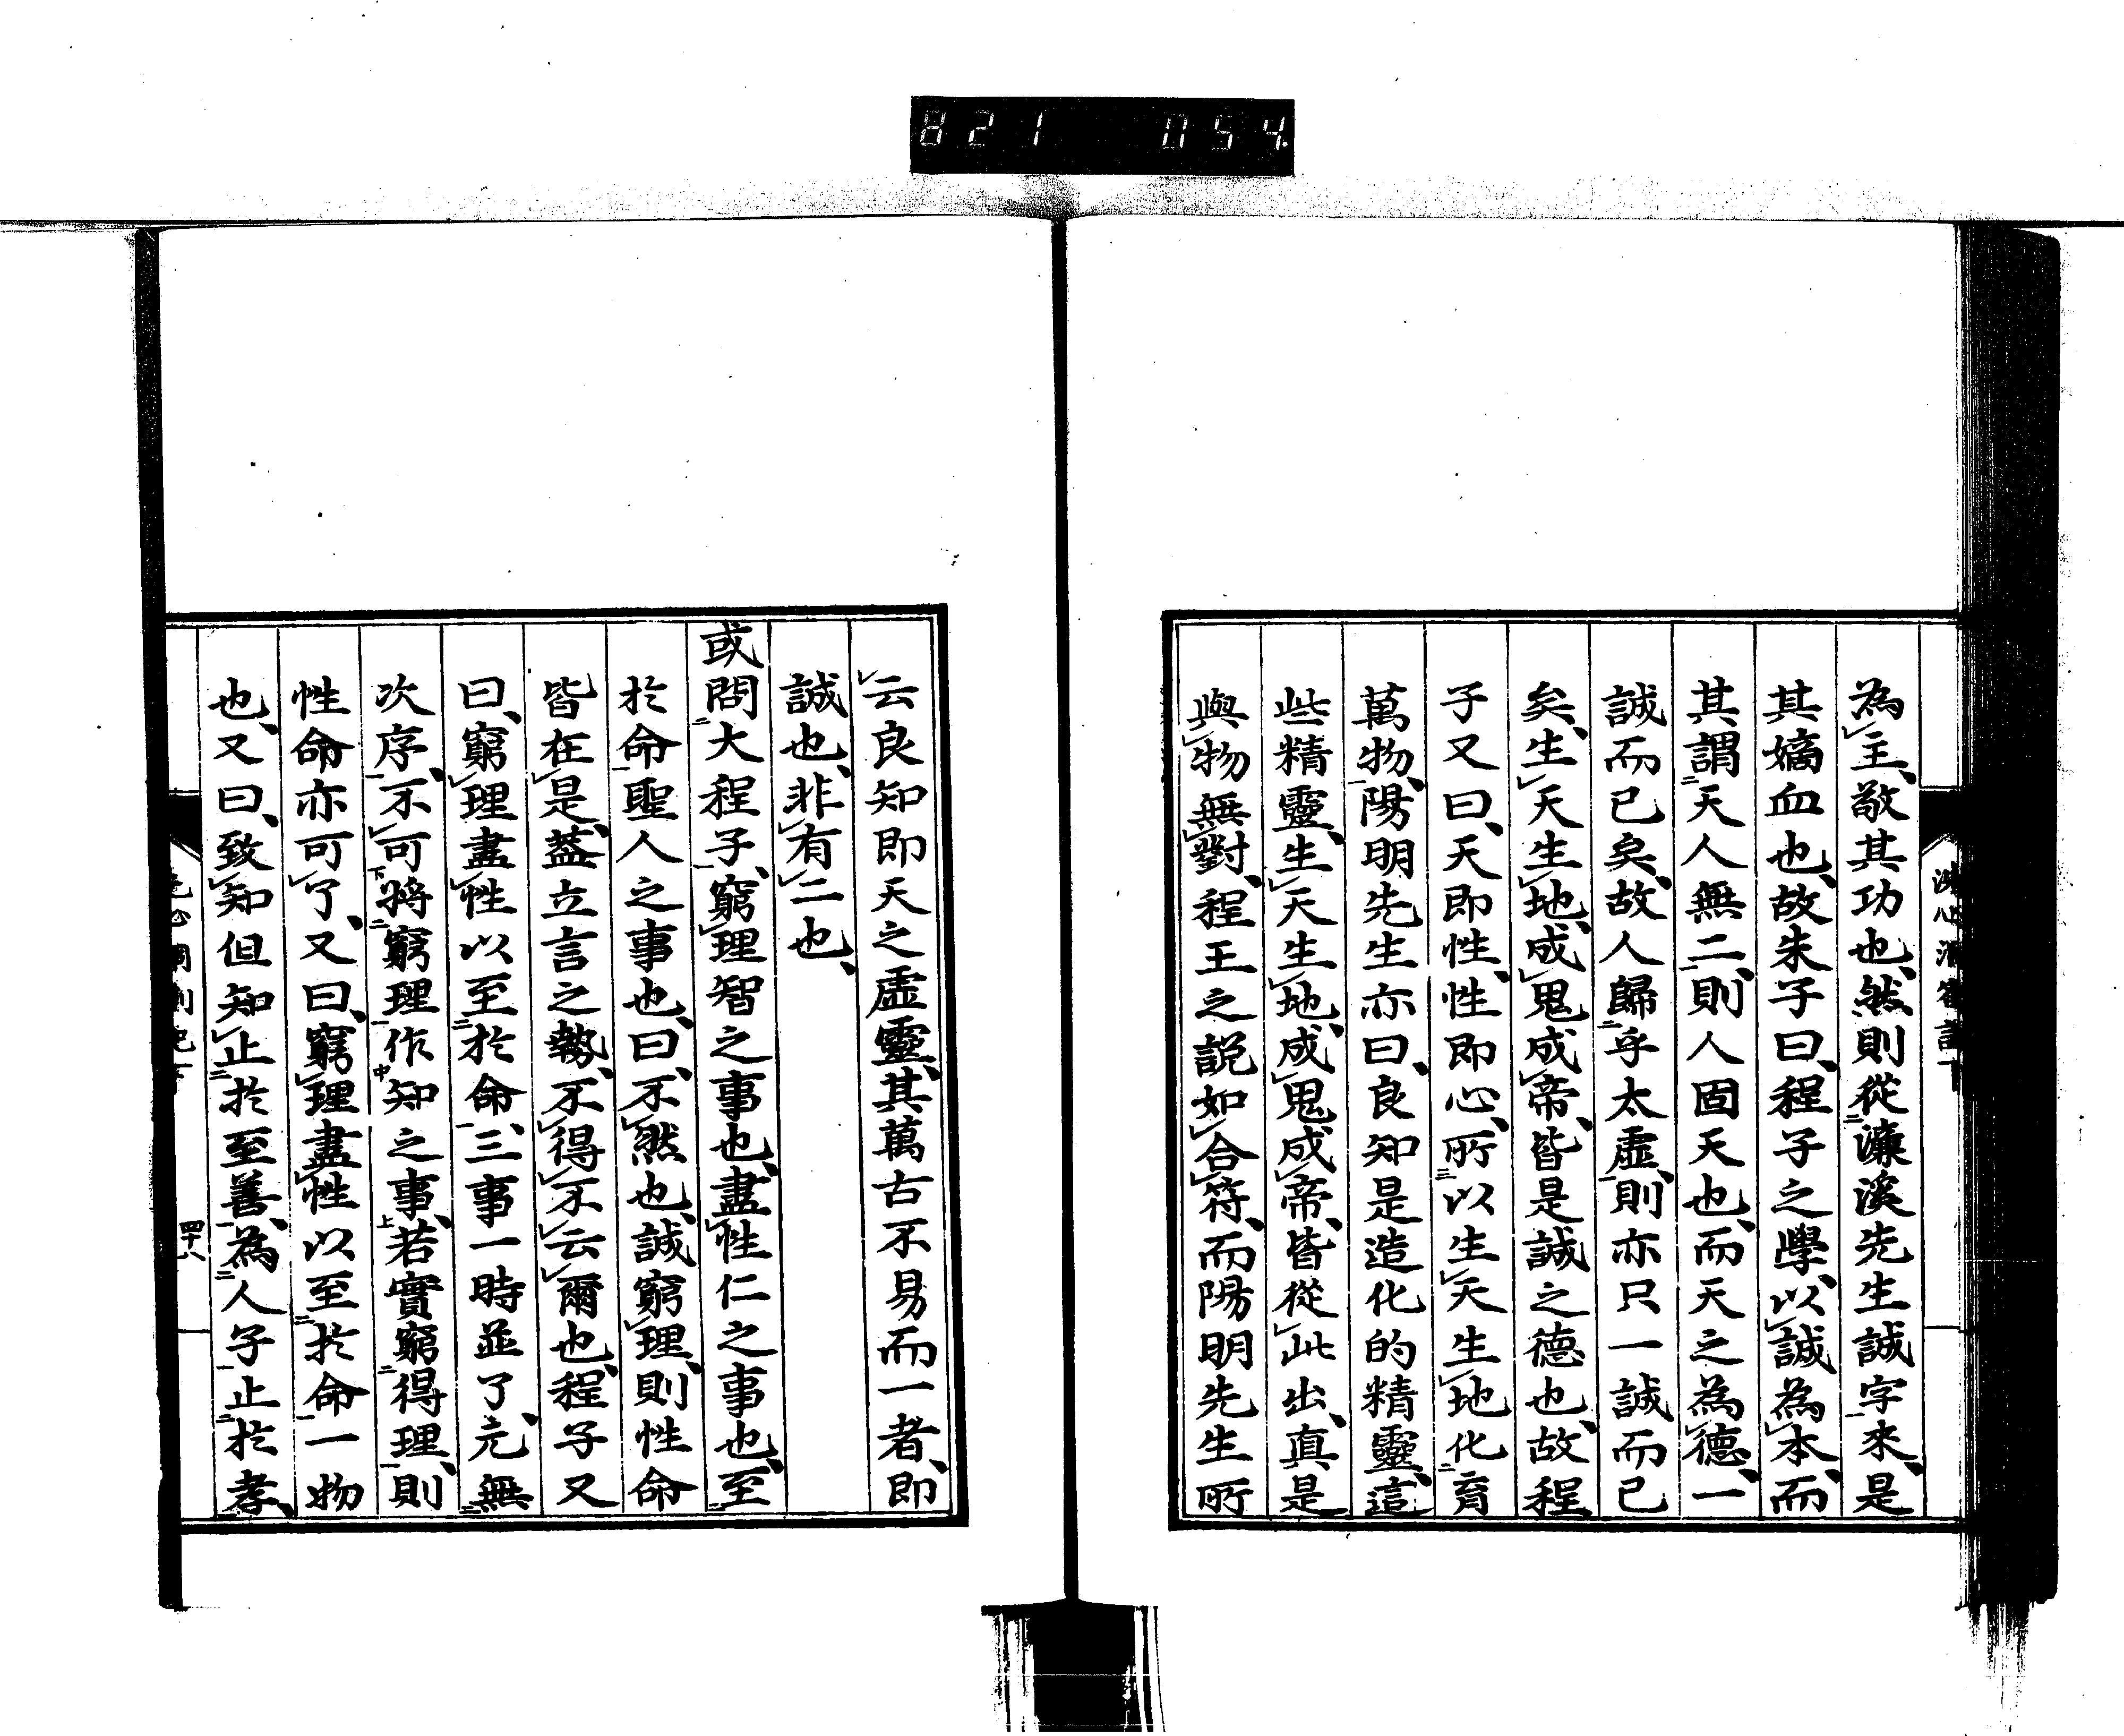 821 054
為主、敬其功也、然則從濂溪先生誠字來、是
其嫡血也、故朱子曰、程子之學、以誠為本、而
其謂天人無二、則人固天也、而天之為德、一
誠而已矣、故人歸乎太虛、則亦只一誠而已
矣、生天生地、成鬼成帝、皆是誠之德也、故程
子又曰、天即性、性即心、所以生天生地化育
萬物、陽明先生亦曰、良知是造化的精靈、這
些精靈、生天生地、成鬼成帝、皆從此出、真是
與物無對、程王之說如合符、而陽明先生所
云良知即天之虛靈、其萬古不易而一者、即
誠也、非有二也、
或問大程子、窮理智之事也、盡性仁之事也、至
於命聖人之事也、曰、不然也、誠窮理、則性命
皆在是、蓋立言之勢、不得不云爾也、程子又
曰、窮理盡性以至於命、三事一時並了、元無
次序、不可將窮理作知之事、若實窮得理、則
性命亦可了、又曰、窮理盡性以至於命一物
也、又曰、致知但知止於至善、為人子止於孝、
四十八